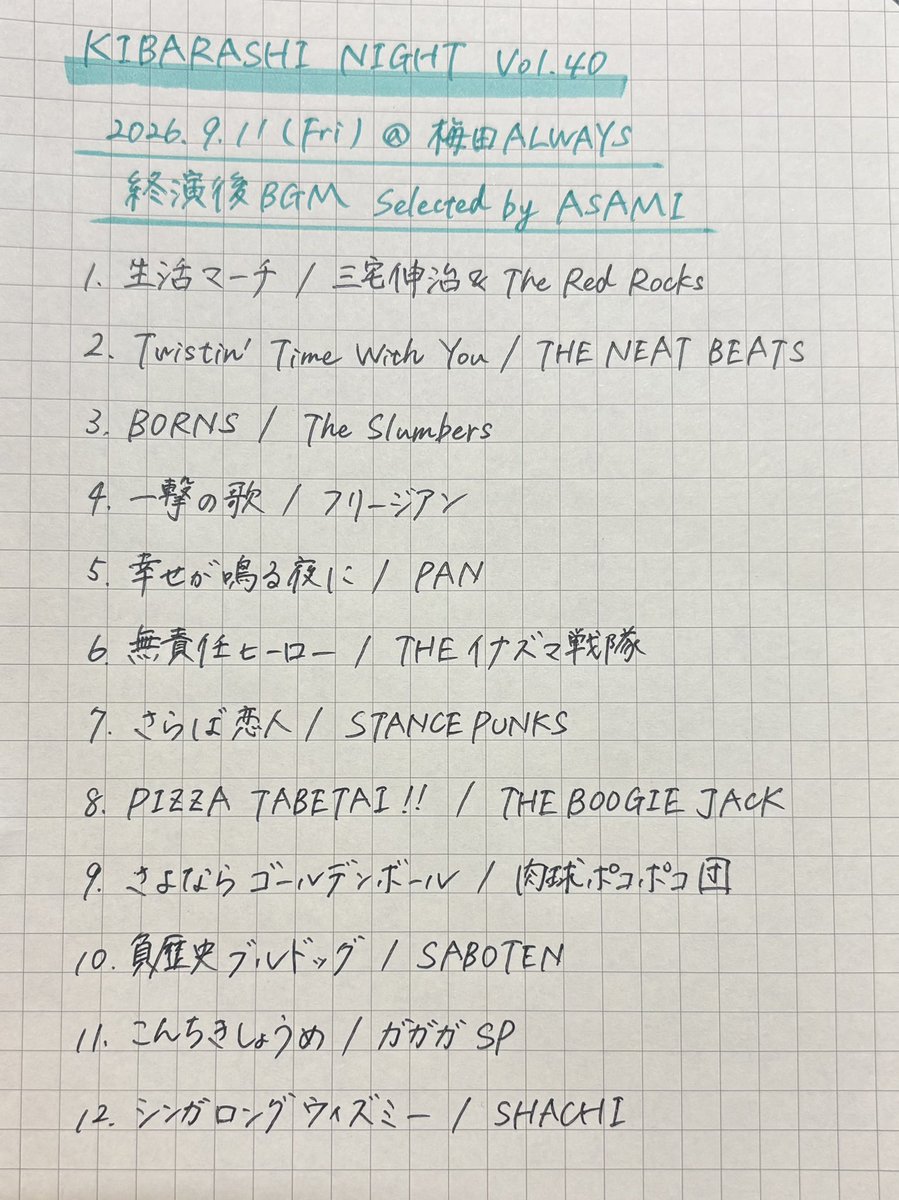 KIBARASHI NIGHT Vol.40
2026.9.11(Fri)@梅田ALWAYS
終演後BGM Selected by ASAMI
1. 生活マーチ / 三宅伸治 & The Red Rocks
2. Twistin' Time With You / THE NEAT BEATS
3. BORNS / The Slumbers
4. 一撃の歌 / フリージアン
5. 幸せが鳴る夜に / PAN
6. 無責任ヒーロー / THE イナズマ戦隊
7. さらば恋人 / STANCE PUNKS
8. PIZZA TABETAI!! / THE BOOGIE JACK
9. さよならゴールデンボール / 肉球ポコポコ団
10. 負歴史ブルドッグ / SABOTEN
11. こんちきしょうめ / ガガガSP
12. シンガロングウィズミー / SHACHI